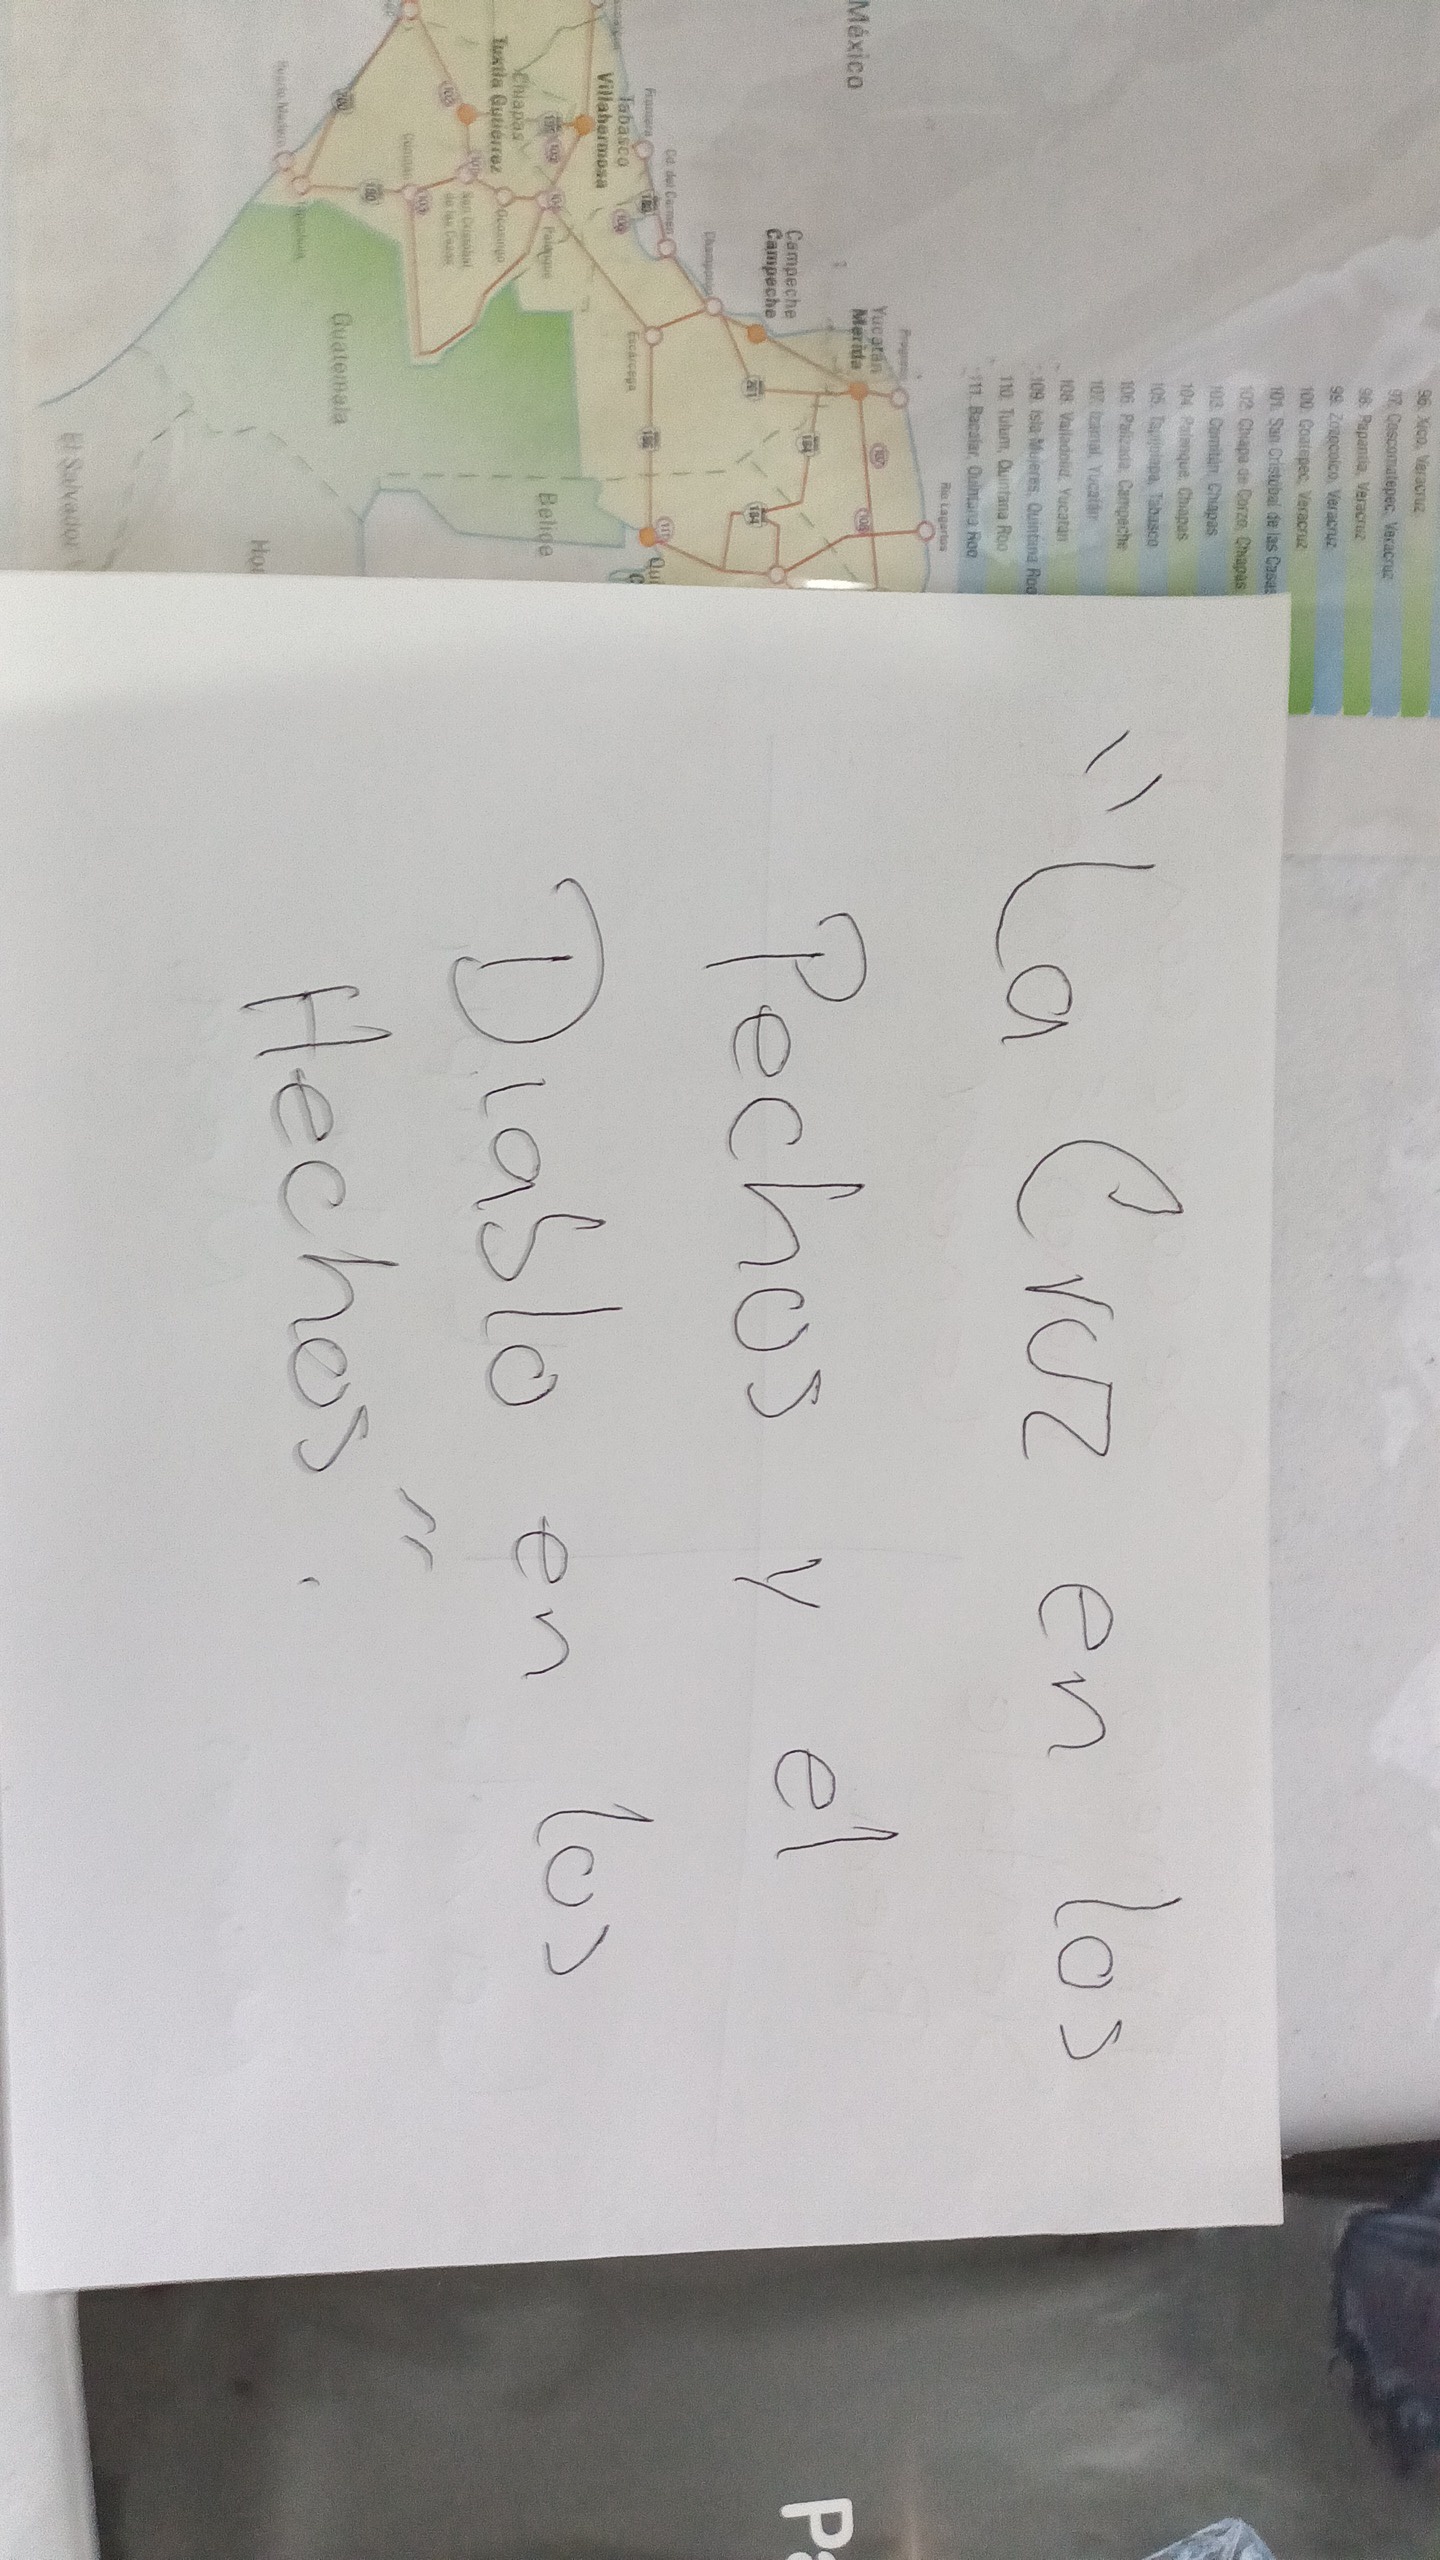 "La Cruz en los
Pechos y el
Diablo en los
Hechos".
México
Tabasco
Villahermosa
Chiapas
Tuxtla Gutiérrez
Campeche
Campeche
Yucatán
Mérida
Frontera
Cd. del Carmen
Champotón
Escárcega
Palenque
Ocosingo
San Cristóbal
de las Casas
Río Lagartos
Guatemala
Belice
El Salvador
96. Xico, Veracruz
97. Coscomatepec, Veracruz
98. Papantla, Veracruz
99. Zozocolco, Veracruz
100. Coatepec, Veracruz
101. San Cristóbal de las Casas
102. Chiapa de Corzo, Chiapas
103. Comitán, Chiapas
104. Palenque, Chiapas
105. Tapijulapa, Tabasco
106. Palizada, Campeche
107. Izamal, Yucatán
108. Valladolid, Yucatán
109. Isla Mujeres, Quintana Roo
110. Tulum, Quintana Roo
111. Bacalar, Quintana Roo